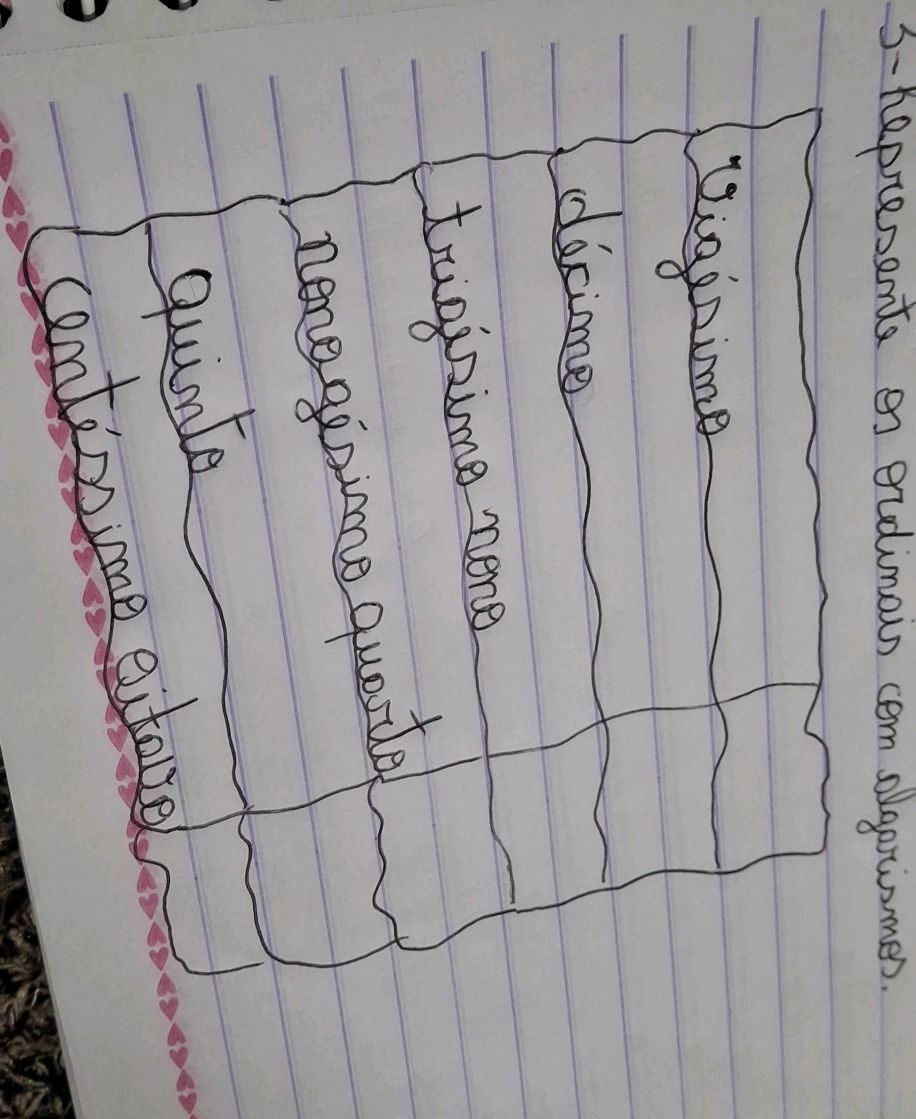 3- Represente os ordinais com algarismos.
Vigésimo
décimo
trigésimo nono
nonagésimo quarto
Quinto
Centéssimo oitavo